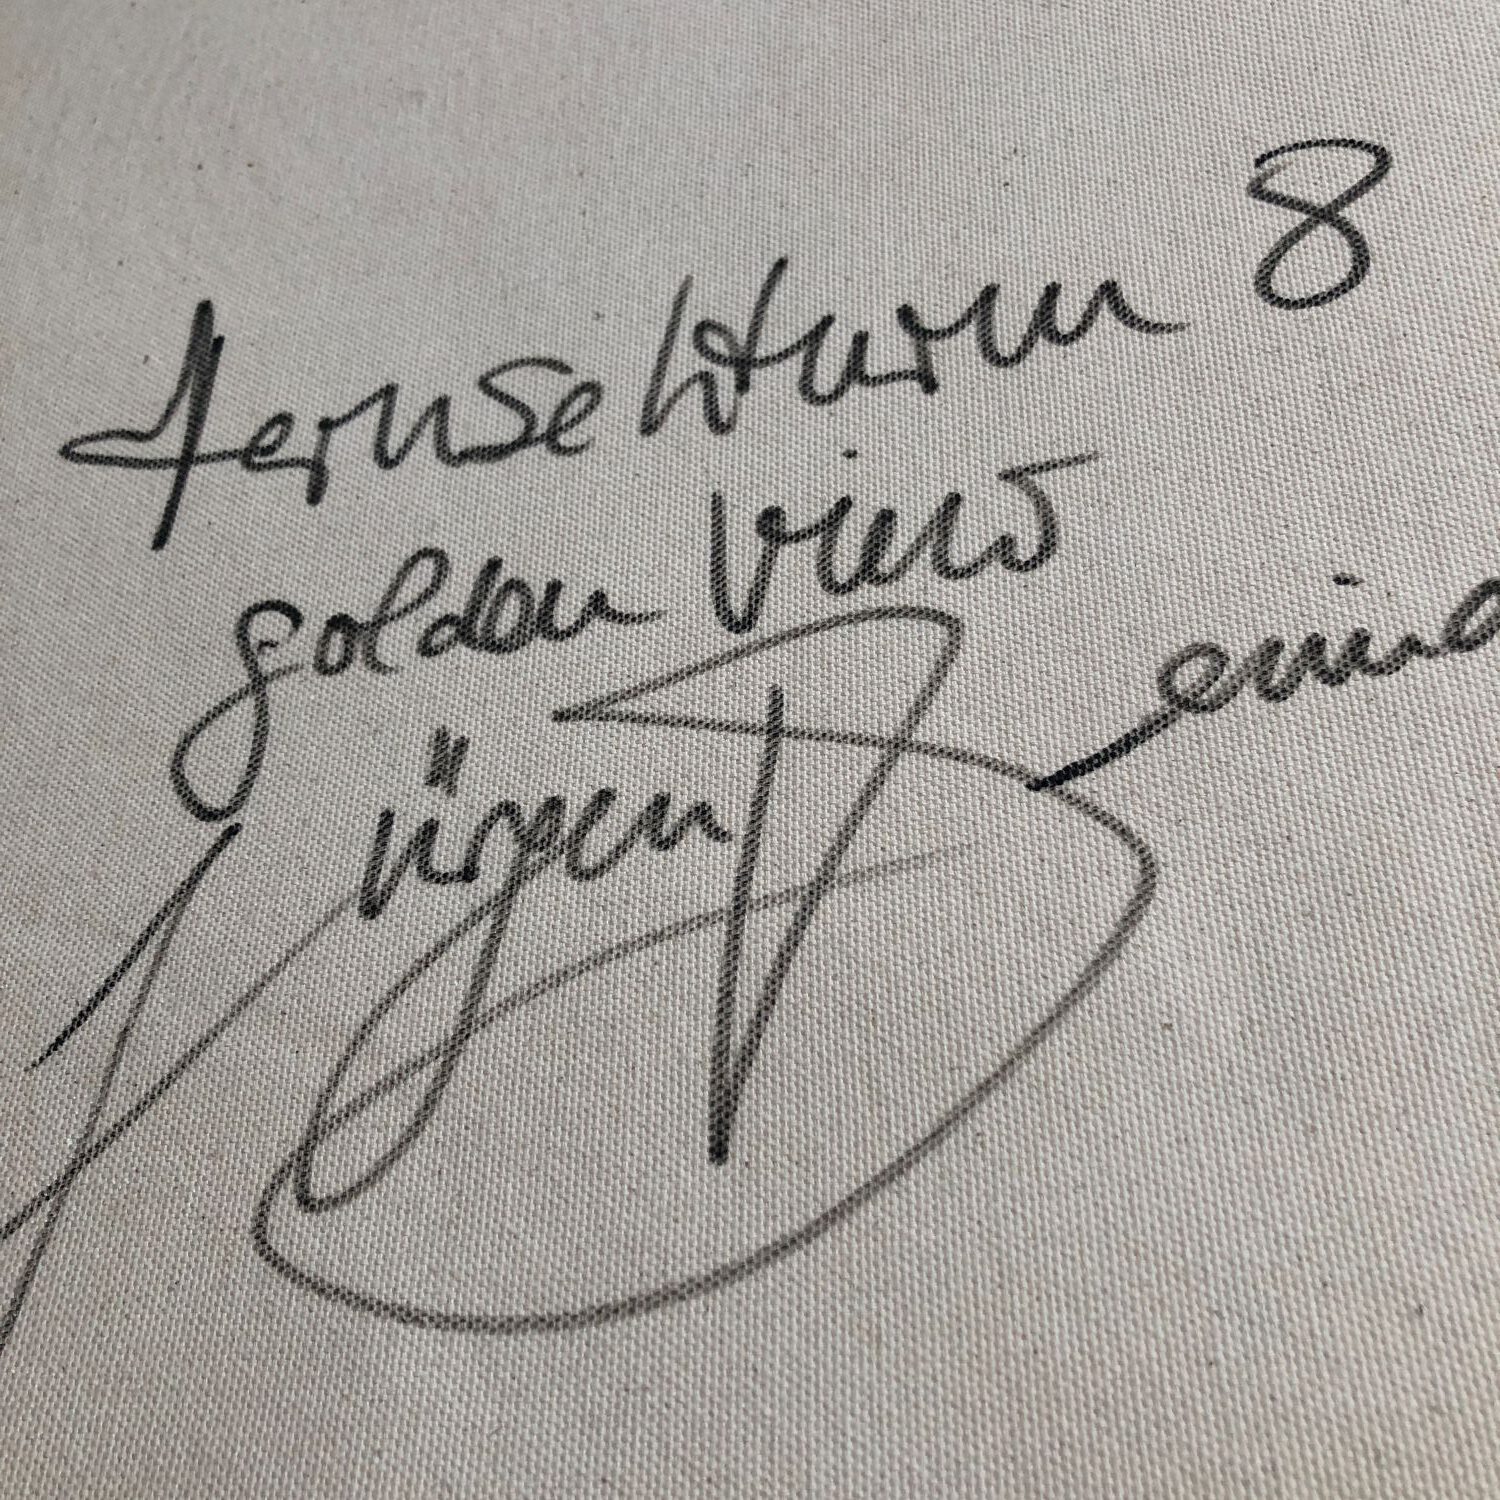 fernsehturm 8
golden view
Jürgen